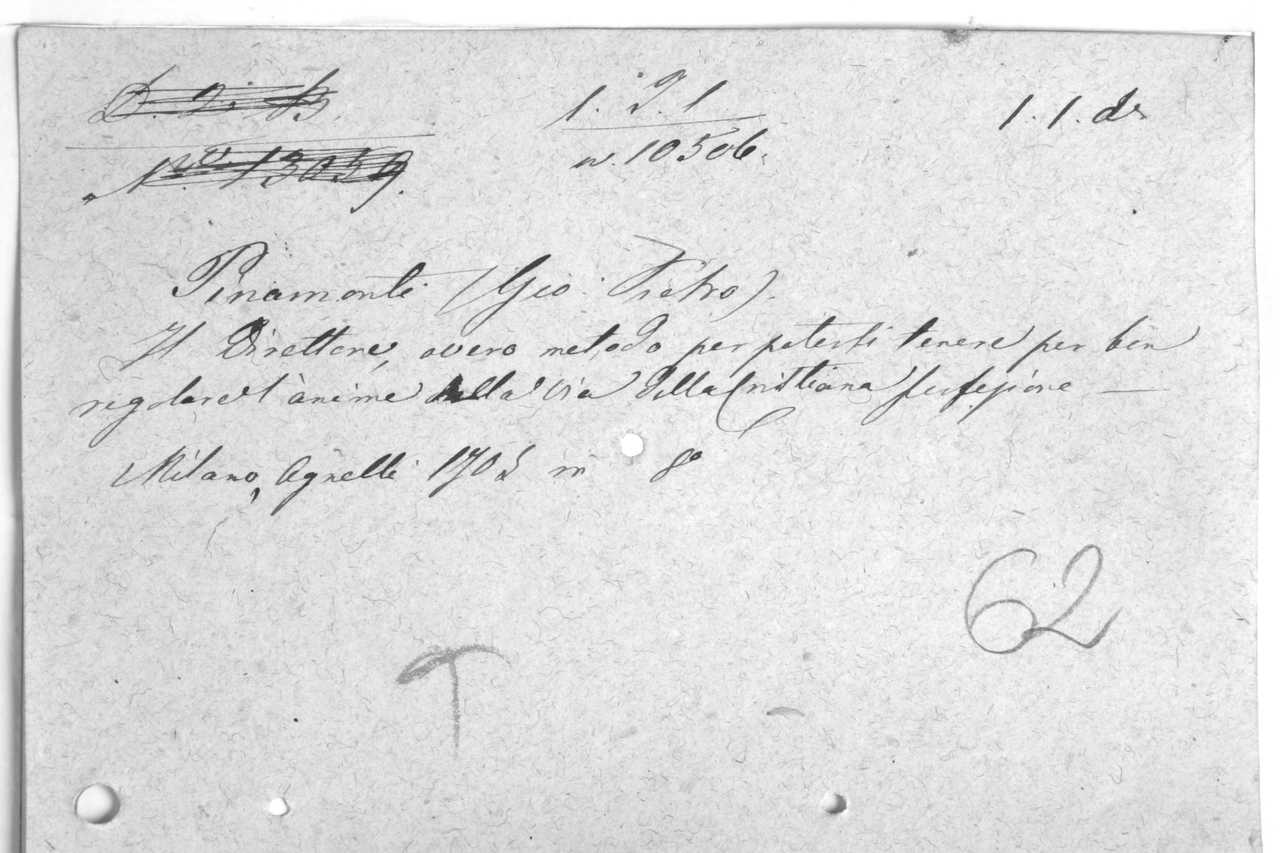 D. 2. B.
1. 2. 1
1. 1. d.
No. 13039.
n. 10506.
Pinamonti (Gio: Pietro).
Il Direttore, overo metodo per potersi tenere per ben
regolare l'anime nella via della Cristiana perfezione —
Milano, Agnelli 1705 in 8°
62
T